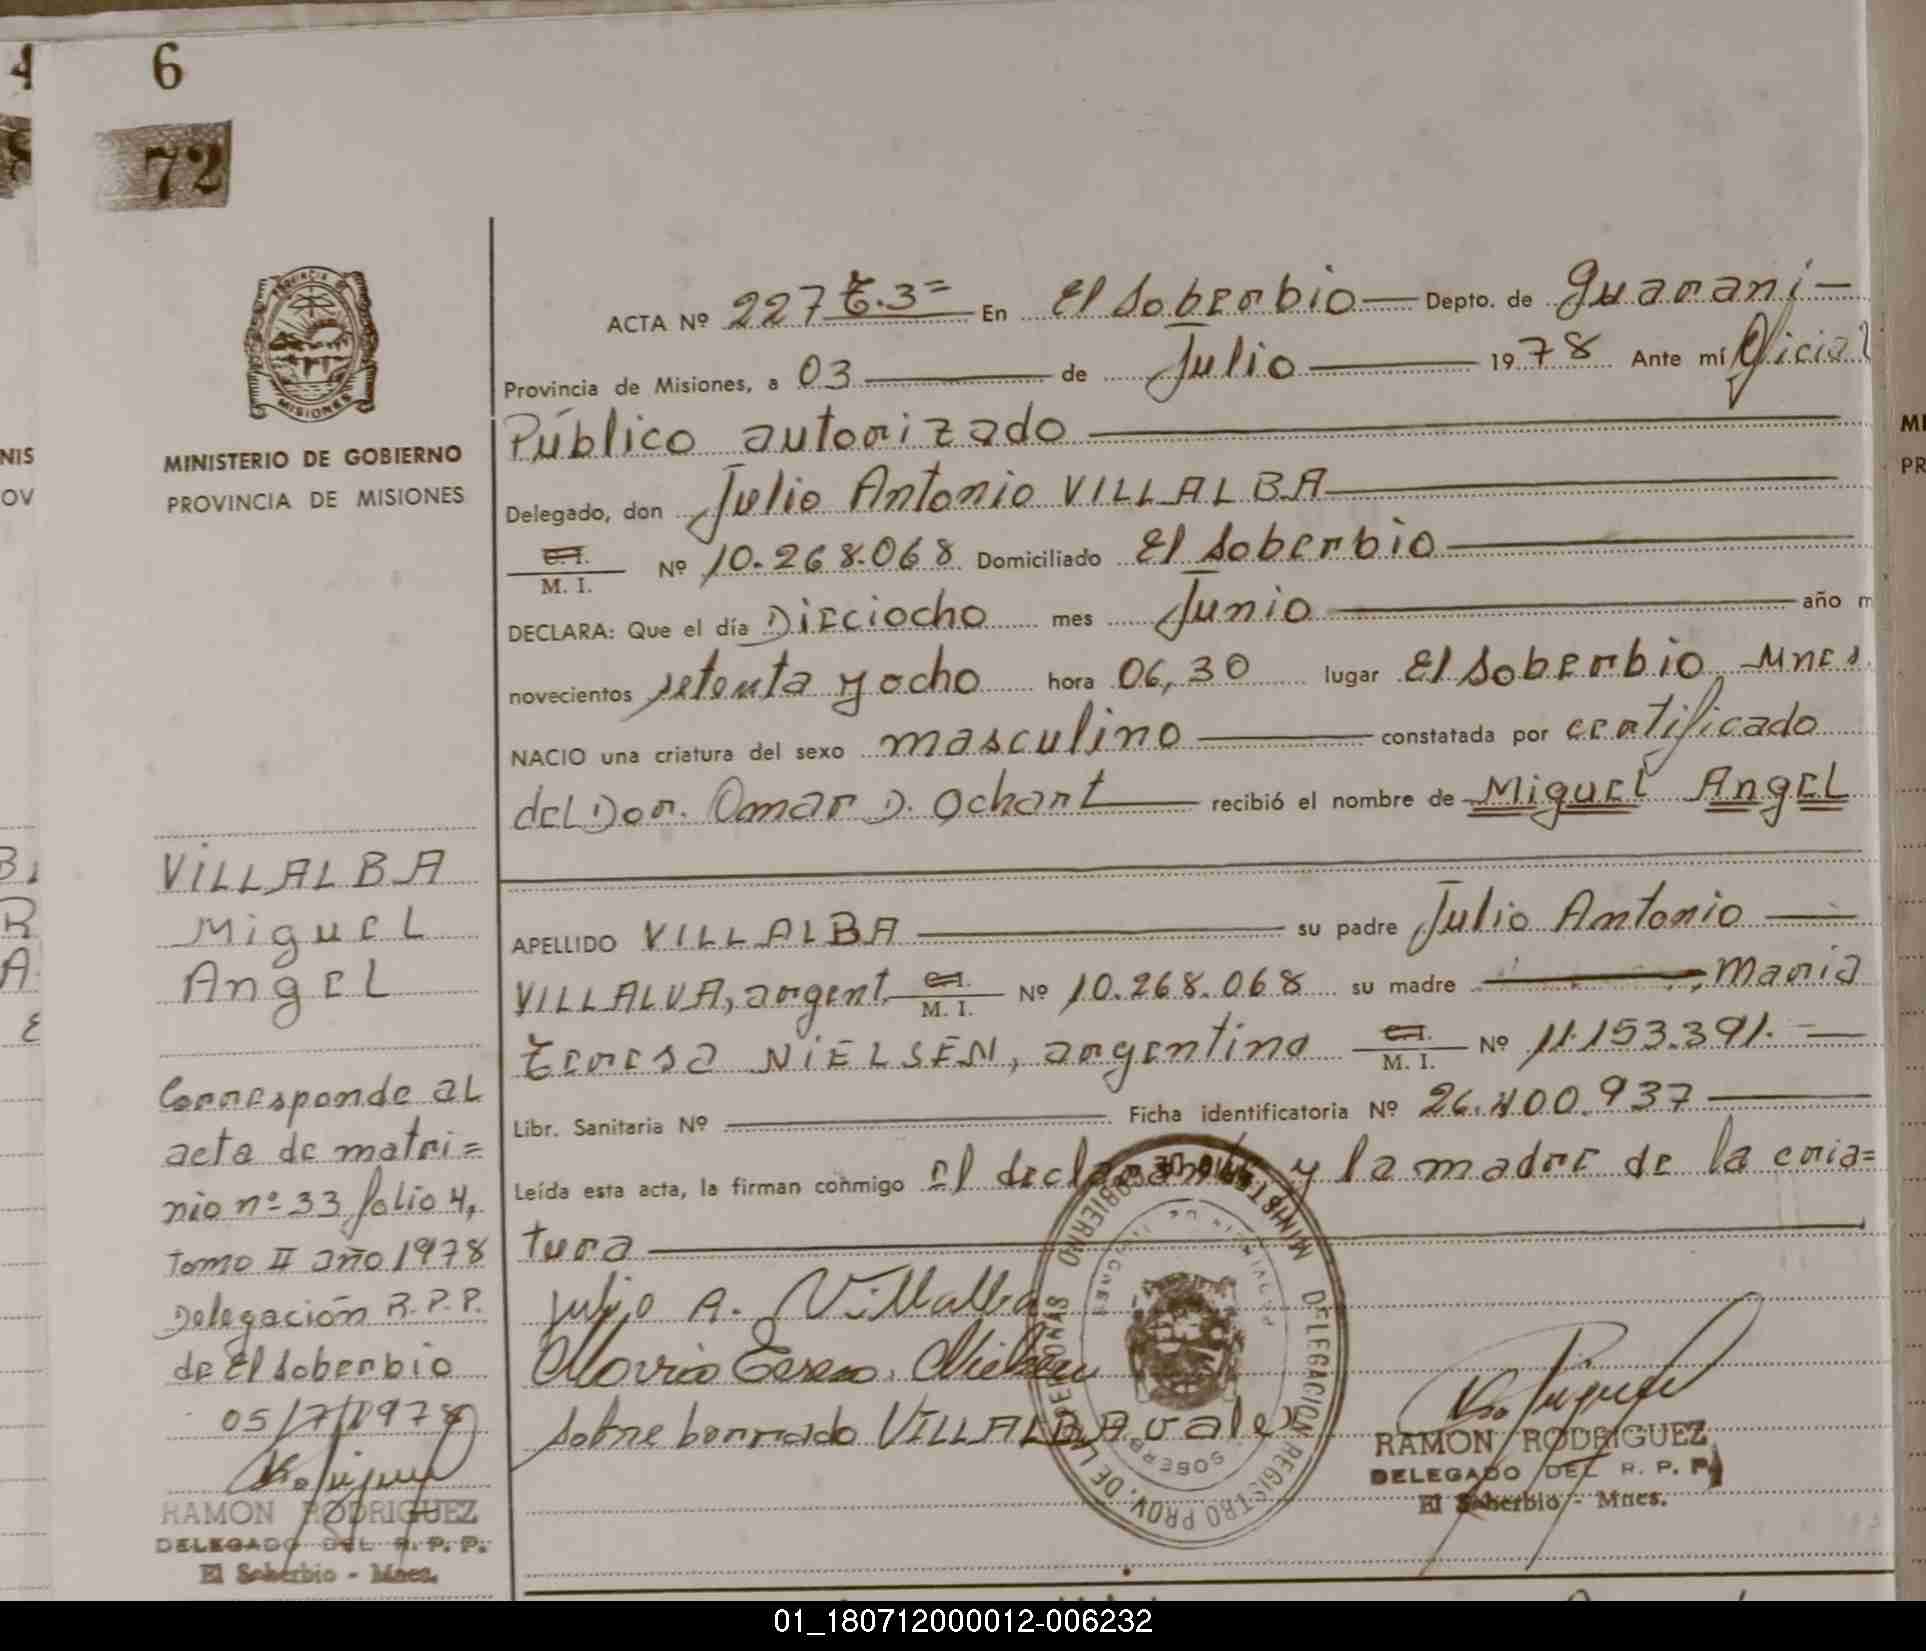 6
72
PROVINCIA
MISIONES
MINISTERIO DE GOBIERNO
PROVINCIA DE MISIONES
VILLALBA
Miguel
Angel
Corresponde al
acta de matri=
nio nº 33 folio 4,
tomo II año 1978
Delegación R.P.P.
de El Soberbio
05/7/1978
RAMON RODRIGUEZ
DELEGADO DEL R. P. P.
El Soberbio - Mnes.
ACTA Nº 227 t.3= En El Soberbio Depto. de Guaraní
Provincia de Misiones, a 03 de Julio 1978 Ante mí Oficial
Público autorizado
Delegado, don Julio Antonio VILLALBA
C.I. M. I. Nº 10.268.068 Domiciliado El Soberbio
DECLARA: Que el día Dieciocho mes Junio año m
novecientos setenta y ocho hora 06,30 lugar El Soberbio Mnes.
NACIO una criatura del sexo masculino constatada por certificado
del Dor. Omar D. Ochart recibió el nombre de Miguel Angel
APELLIDO VILLALBA su padre Julio Antonio
VILLALVA, argent. C.I. M. I. Nº 10.268.068 su madre , Maria
Teresa NIELSEN, argentina C.I. M. I. Nº 11.153.391.
Libr. Sanitaria Nº Ficha identificatoria Nº 26.400.937
Leída esta acta, la firman conmigo el declarante y la madre de la cria=
tura
Julio A. Villalba
Maria Teresa Nielsen
Sobre borrado VILLALBA vale
MINISTERIO DE GOBIERNO
DELEGACION REGISTRO PROV. DE LAS PERSONAS
RAMON RODRIGUEZ
DELEGADO DEL R. P. P.
El Soberbio - Mnes.
NIS
OV
MI
PR
01_180712000012-006232